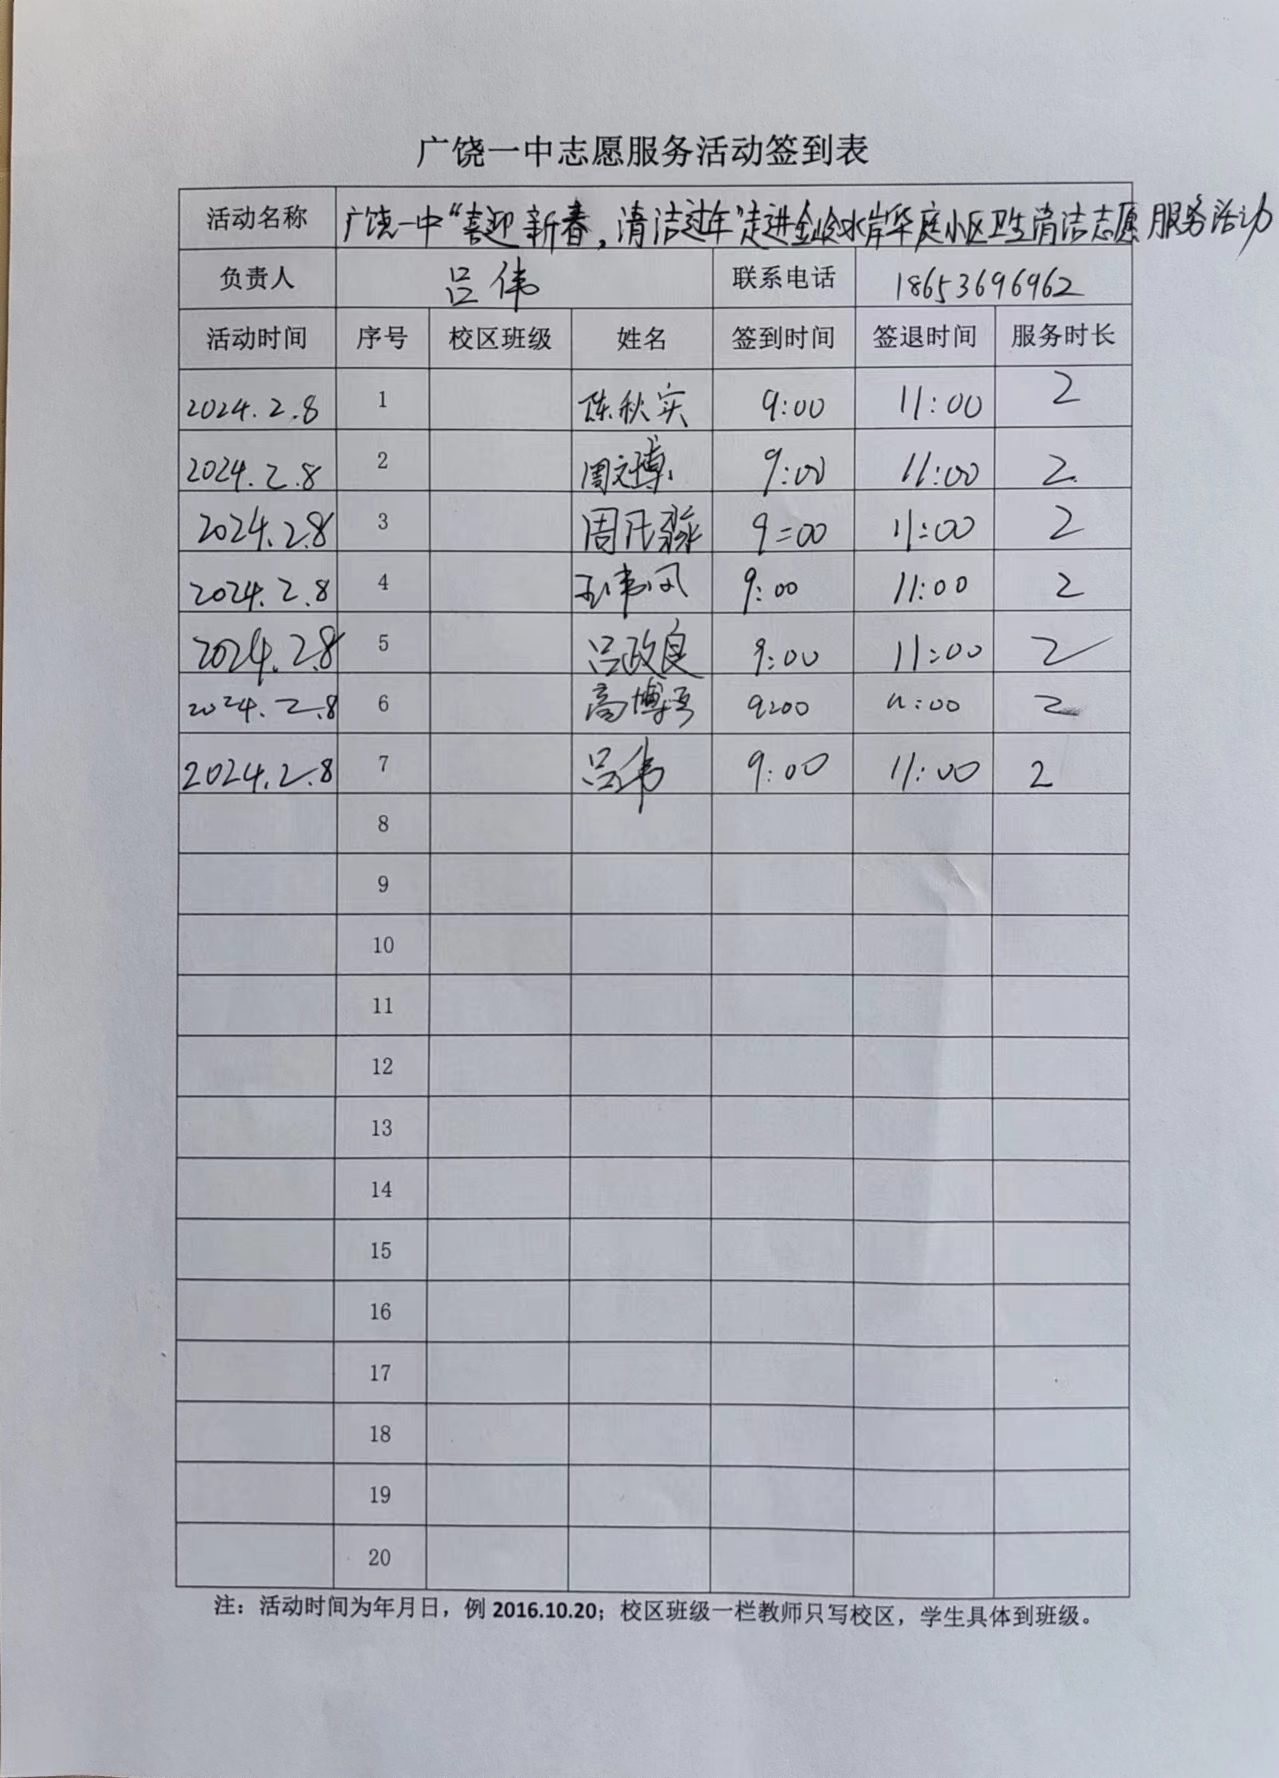 广饶一中志愿服务活动签到表
活动名称 广饶一中“喜迎新春，清洁过年”走进金岭水岸华庭小区卫生清洁志愿服务活动
负责人 吕伟 联系电话 18653696962
活动时间 序号 校区班级 姓名 签到时间 签退时间 服务时长
2024.2.8 1 陈秋实 9:00 11:00 2
2024.2.8 2 周文博 9:00 11:00 2
2024.2.8 3 周 9:00 11:00 2
2024.2.8 4 9:00 11:00 2
2024.2.8 5 吕政良 9:00 11:00 2
2024.2.8 6 高博 9:00 11:00 2
2024.2.8 7 吕伟 9:00 11:00 2
8
9
10
11
12
13
14
15
16
17
18
19
20
注：活动时间为年月日，例 2016.10.20；校区班级一栏教师只写校区，学生具体到班级。